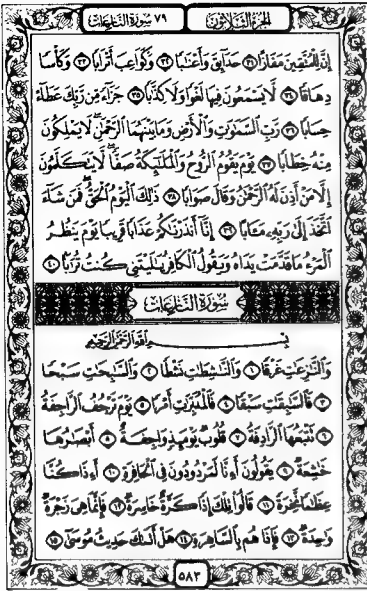 الجزء الثلاثون
٧٩ سورة النازعات
إِنَّ لِلْمُتَّقِينَ مَفَازًا ٣١ حَدَآئِقَ وَأَعْنَٰبًا ٣٢ وَكَوَاعِبَ أَتْرَابًا ٣٣ وَكَأْسًا
دِهَاقًا ٣٤ لَّا يَسْمَعُونَ فِيهَا لَغْوًا وَلَا كِذَّٰبًا ٣٥ جَزَآءً مِّن رَّبِّكَ عَطَآءً
حِسَابًا ٣٦ رَّبِّ ٱلسَّمَٰوَٰتِ وَٱلْأَرْضِ وَمَا بَيْنَهُمَا ٱلرَّحْمَٰنِ ۖ لَا يَمْلِكُونَ
مِنْهُ خِطَابًا ٣٧ يَوْمَ يَقُومُ ٱلرُّوحُ وَٱلْمَلَٰٓئِكَةُ صَفًّا ۖ لَّا يَتَكَلَّمُونَ
إِلَّا مَنْ أَذِنَ لَهُ ٱلرَّحْمَٰنُ وَقَالَ صَوَابًا ٣٨ ذَٰلِكَ ٱلْيَوْمُ ٱلْحَقُّ ۖ فَمَن شَآءَ
ٱتَّخَذَ إِلَىٰ رَبِّهِۦ مَـَٔابًا ٣٩ إِنَّآ أَنذَرْنَٰكُمْ عَذَابًا قَرِيبًا يَوْمَ يَنظُرُ
ٱلْمَرْءُ مَا قَدَّمَتْ يَدَاهُ وَيَقُولُ ٱلْكَافِرُ يَٰلَيْتَنِى كُنتُ تُرَٰبًۢا ٤٠
سورة النازعات
بِسْمِ ٱللَّهِ ٱلرَّحْمَٰنِ ٱلرَّحِيمِ
وَٱلنَّٰزِعَٰتِ غَرْقًا ١ وَٱلنَّٰشِطَٰتِ نَشْطًا ٢ وَٱلسَّٰبِحَٰتِ سَبْحًا
٣ فَٱلسَّٰبِقَٰتِ سَبْقًا ٤ فَٱلْمُدَبِّرَٰتِ أَمْرًا ٥ يَوْمَ تَرْجُفُ ٱلرَّاجِفَةُ
٦ تَتْبَعُهَا ٱلرَّادِفَةُ ٧ قُلُوبٌ يَوْمَئِذٍ وَاجِفَةٌ ٨ أَبْصَٰرُهَا
خَٰشِعَةٌ ٩ يَقُولُونَ أَءِنَّا لَمَرْدُودُونَ فِى ٱلْحَافِرَةِ ١٠ أَءِذَا كُنَّا
عِظَٰمًا نَّخِرَةً ١١ قَالُوا۟ تِلْكَ إِذًا كَرَّةٌ خَاسِرَةٌ ١٢ فَإِنَّمَا هِىَ زَجْرَةٌ
وَٰحِدَةٌ ١٣ فَإِذَا هُم بِٱلسَّاهِرَةِ ١٤ هَلْ أَتَىٰكَ حَدِيثُ مُوسَىٰٓ ١٥
٥٨٣